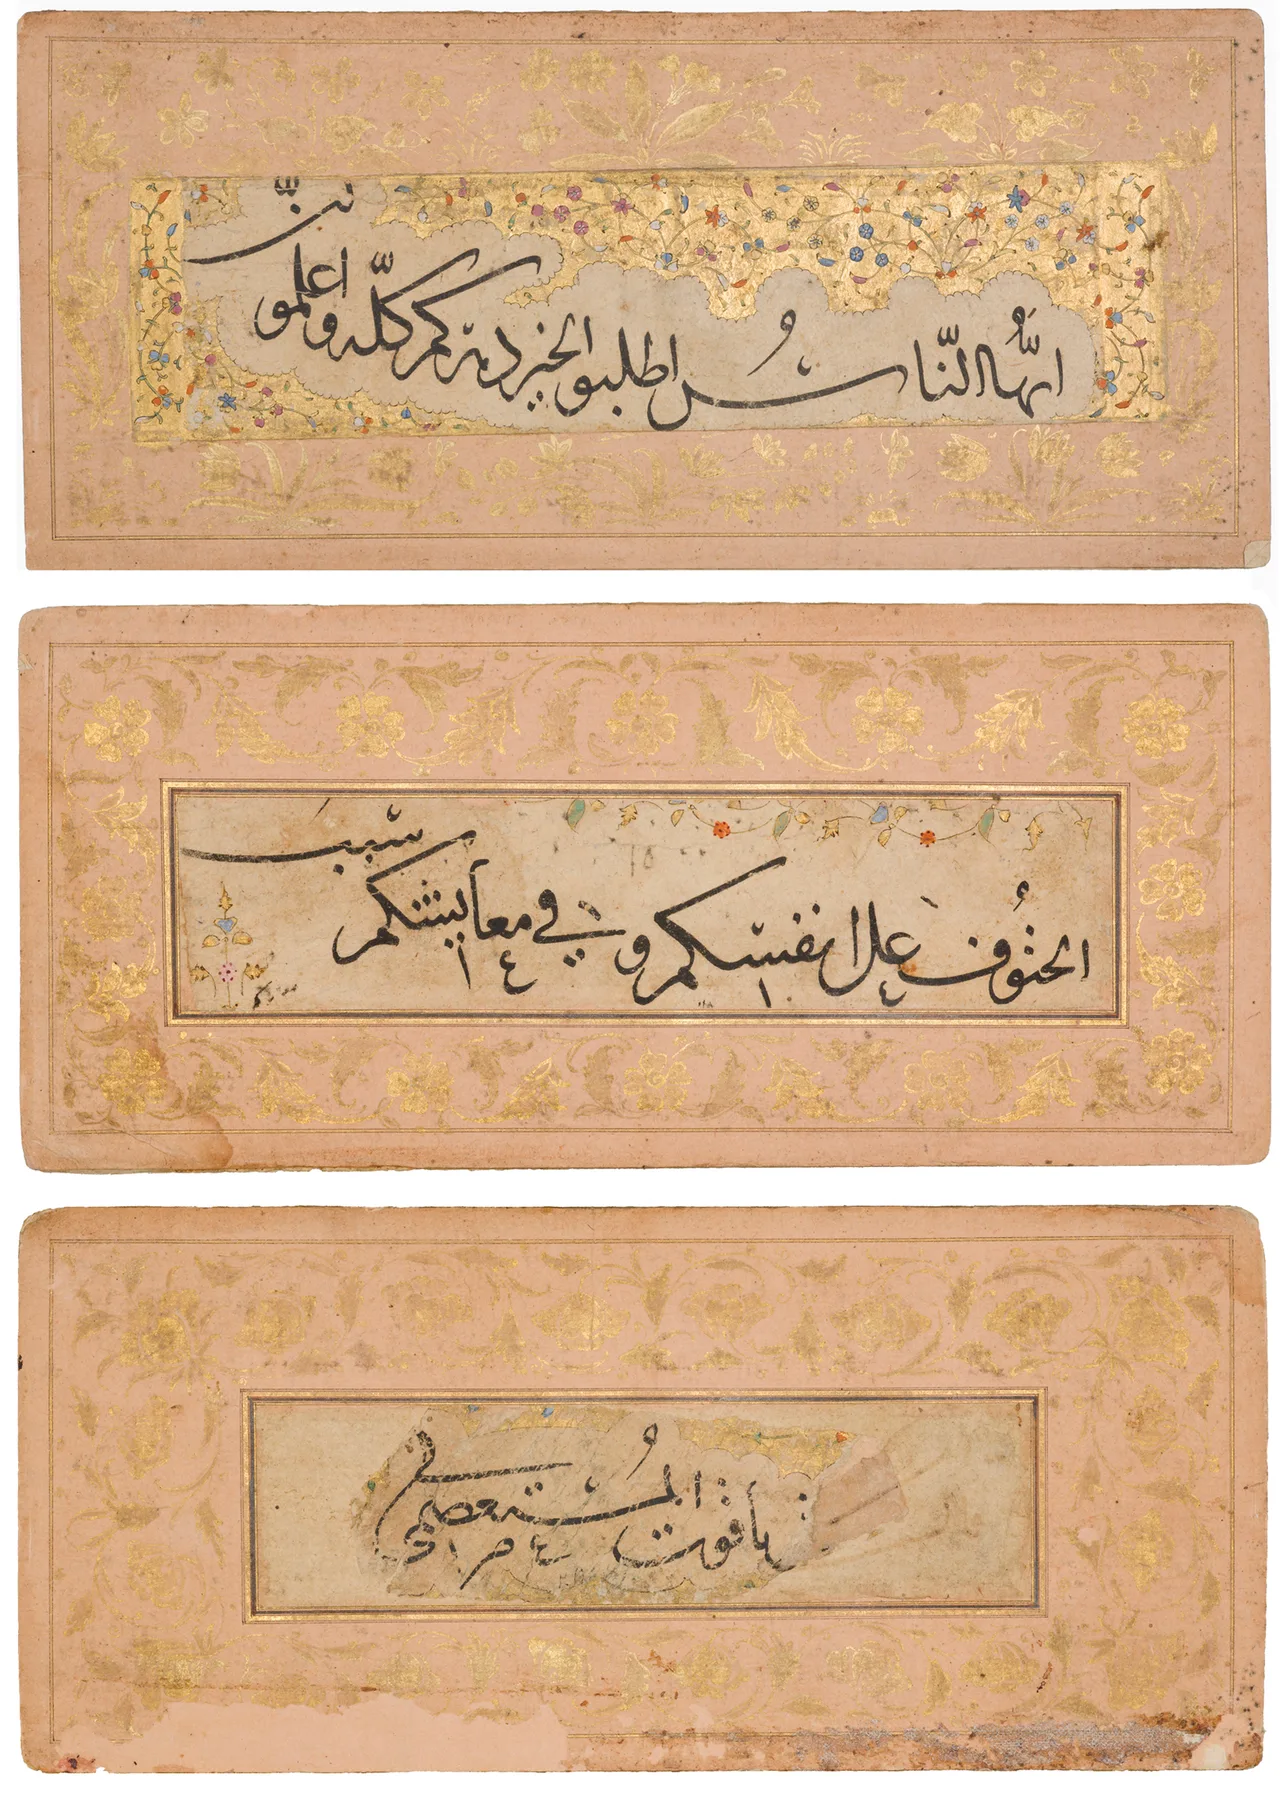 ايّها النّاسُ اطلبو الخير دهركم كلّه واعلمو
انّ
الحتُوف على انفسكم و في معايشكم
ياقوت المُستعصمي